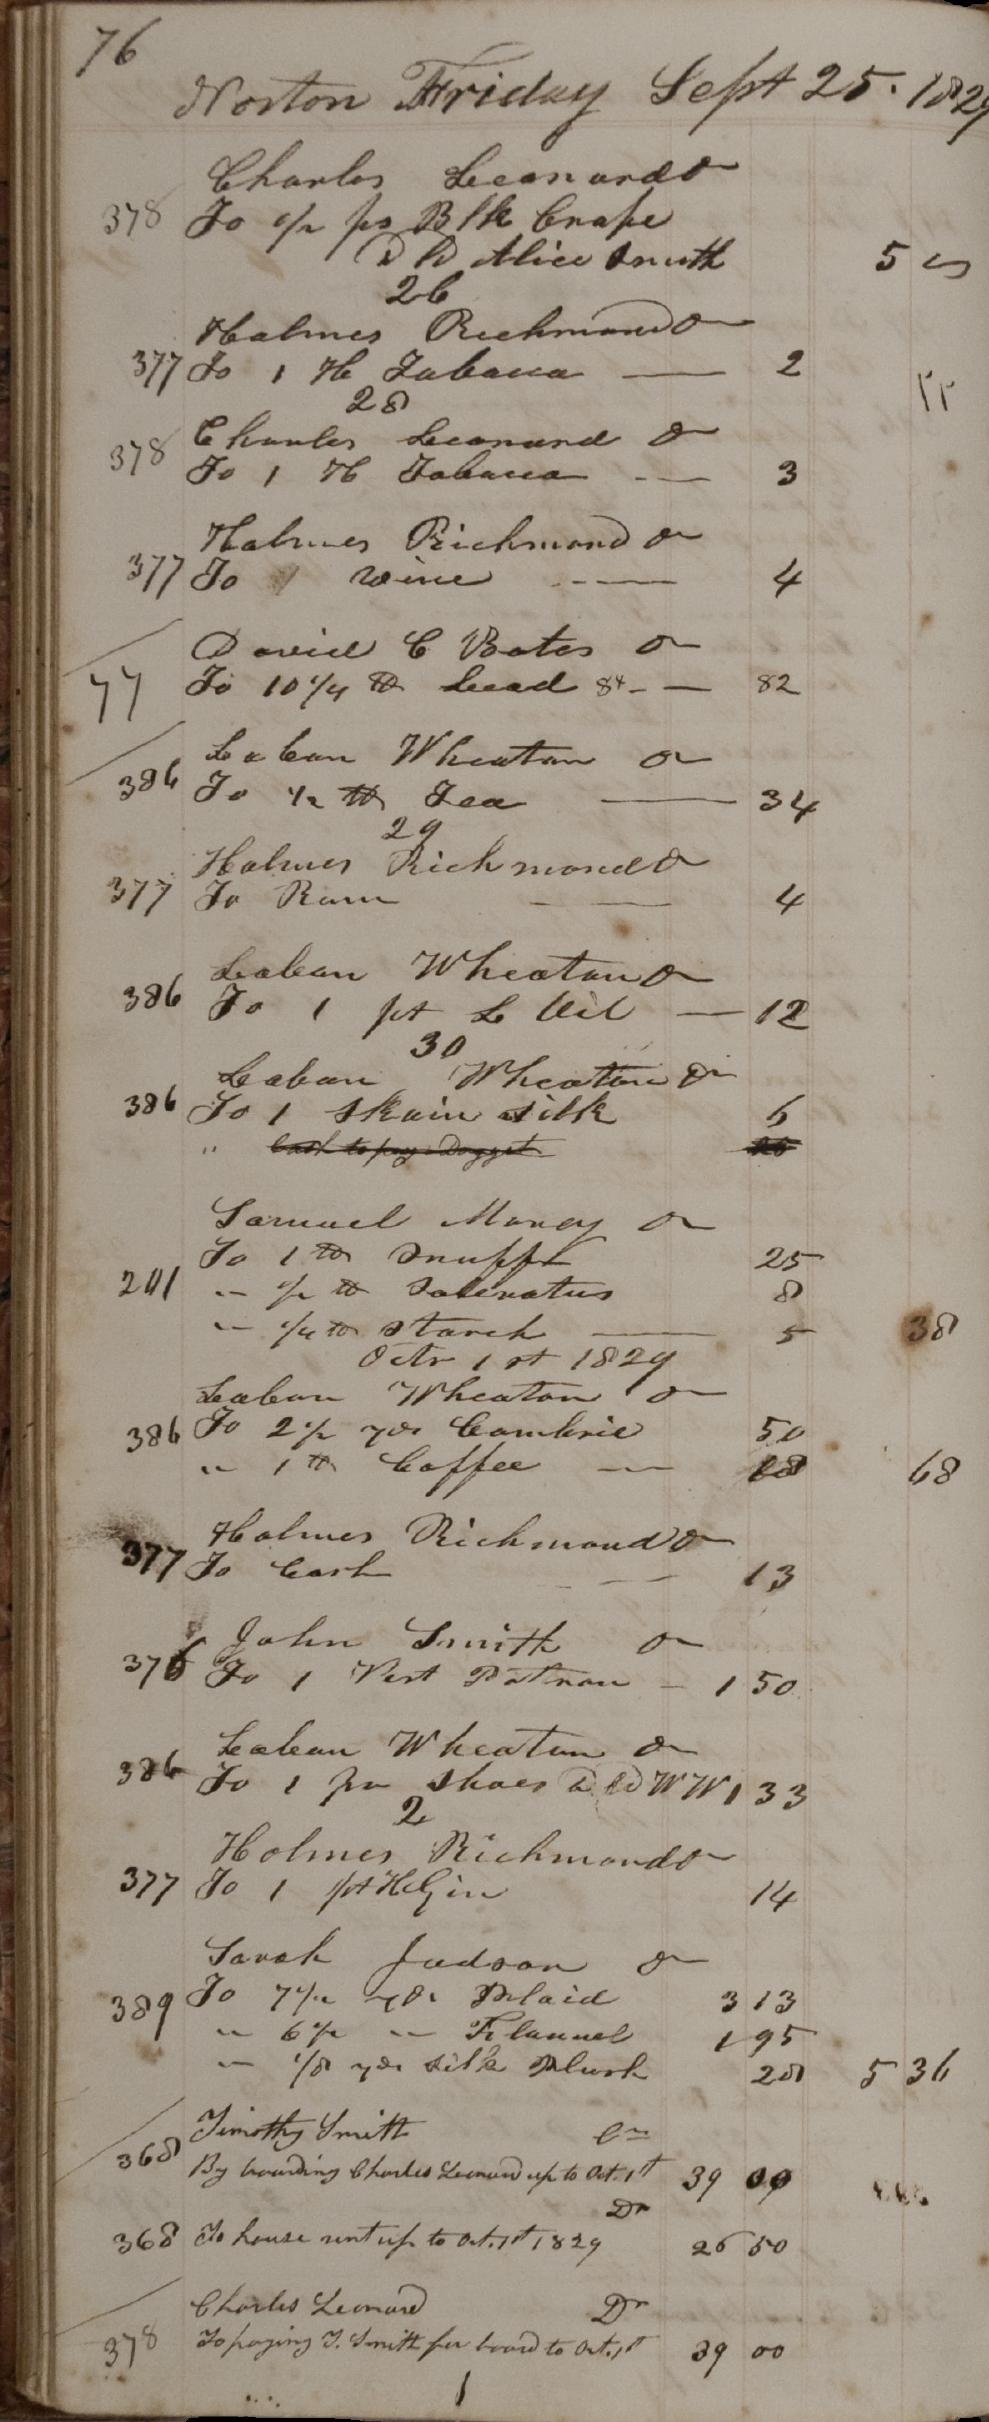 76
Norton Friday Sept 25. 1829
Charles Leonard Dr
378 To 1/2 ps Blk Crape
Dld Alice Smith 5
26
Holmes Richmond Dr
377 To 1 H Tobacco — 2
28
Charles Leonard Dr
378 To 1 H Tobacco — 3
Holmes Richmond Dr
377 To 1 wine — 4
David C Bates Dr
77 To 10 1/4 lb Lead 8 — 82
Laban Wheaton Dr
386 To 1/2 lb Tea — 34
29
Holmes Richmond Dr
377 To Rum — 4
Laban Wheaton Dr
386 To 1 pt L Oil — 12
30
Laban Wheaton Dr
386 To 1 Skain Silk 6
" Cash to pay Dogget
Samuel Morey Dr
To 1 lb Snuff 25
201 " 1/2 lb Salaratus 8
" 1/4 lb Starch — 5 38
Octr 1st 1829
Laban Wheaton Dr
386 To 2 1/2 yds Cambric 50
" 1 lb Coffee — 18 68
Holmes Richmond Dr
377 To Cash — 13
John Smith Dr
376 To 1 Vest Patron — 1 50
Laban Wheaton Dr
386 To 1 pr Shoes Dld W W 1 33
2
Holmes Richmond Dr
377 To 1 pt H Gin 14
Sarah Judson Dr
389 To 7 1/2 yds Plaid 3 13
" 6 1/2 " Flannel 1 95
" 1/8 yds Silk Plush 28 5 36
Timothy Smith Cr
368 By boarding Charles Leonard up to Oct. 1st 39 00
Dr
368 To house rent up to Oct. 1st 1829 26 50
Charles Leonard Dr
378 To paying T. Smith for board to Oct. 1st 39 00
1